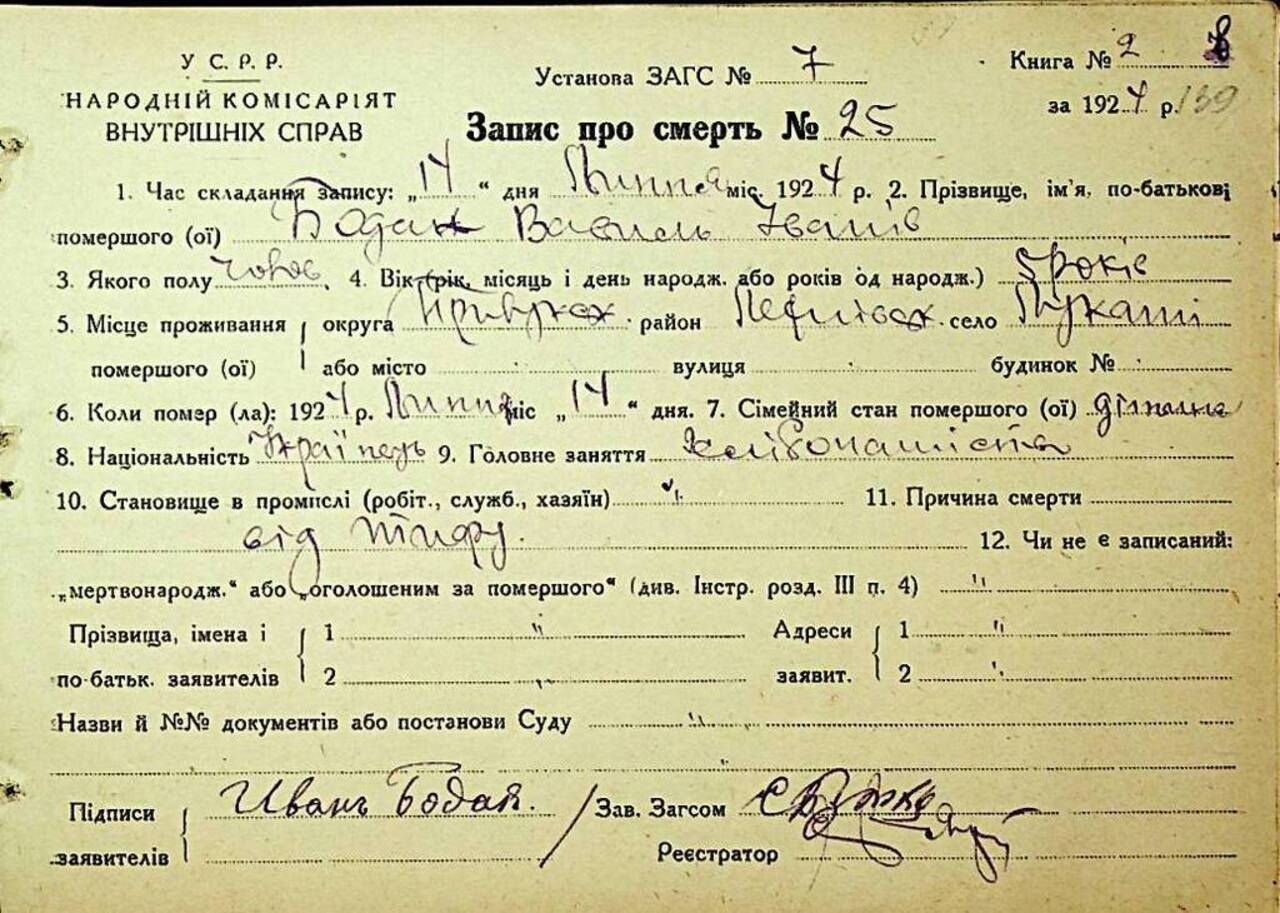 У С. Р. Р.
НАРОДНІЙ КОМІСАРІЯТ
ВНУТРІШНІХ СПРАВ
Установа ЗАГС № 7
Книга № 2
за 1924 р. 139
Запис про смерть № 25
1. Час складання запису: „14“ дня Липня міс. 1924 р. 2. Прізвище, ім'я, по-батькові
помершого (ої) Бодак Василь Іванів
3. Якого полу чолов. 4. Вік (рік, місяць і день народж. або років од народж.) 5 років
5. Місце проживання округа район село
помершого (ої) або місто вулиця будинок №
6. Коли помер (ла): 1924 р. Липня міс „14“ дня. 7. Сімейний стан помершого (ої) дітина
8. Національність Українець 9. Головне заняття
10. Становище в промислі (робіт., служб., хазяїн) „ 11. Причина смерти
від тифу. 12. Чи не є записаний:
„мертвонародж.“ або „оголошеним за помершого“ (див. Інстр. розд. III п. 4) "
Прізвища, імена і 1 " Адреси 1 "
по-батьк. заявителів 2 " заявит. 2 "
Назви й №№ документів або постанови Суду "
Підписи Иванъ Бодак. Зав. Загсом
заявителів Реєстратор